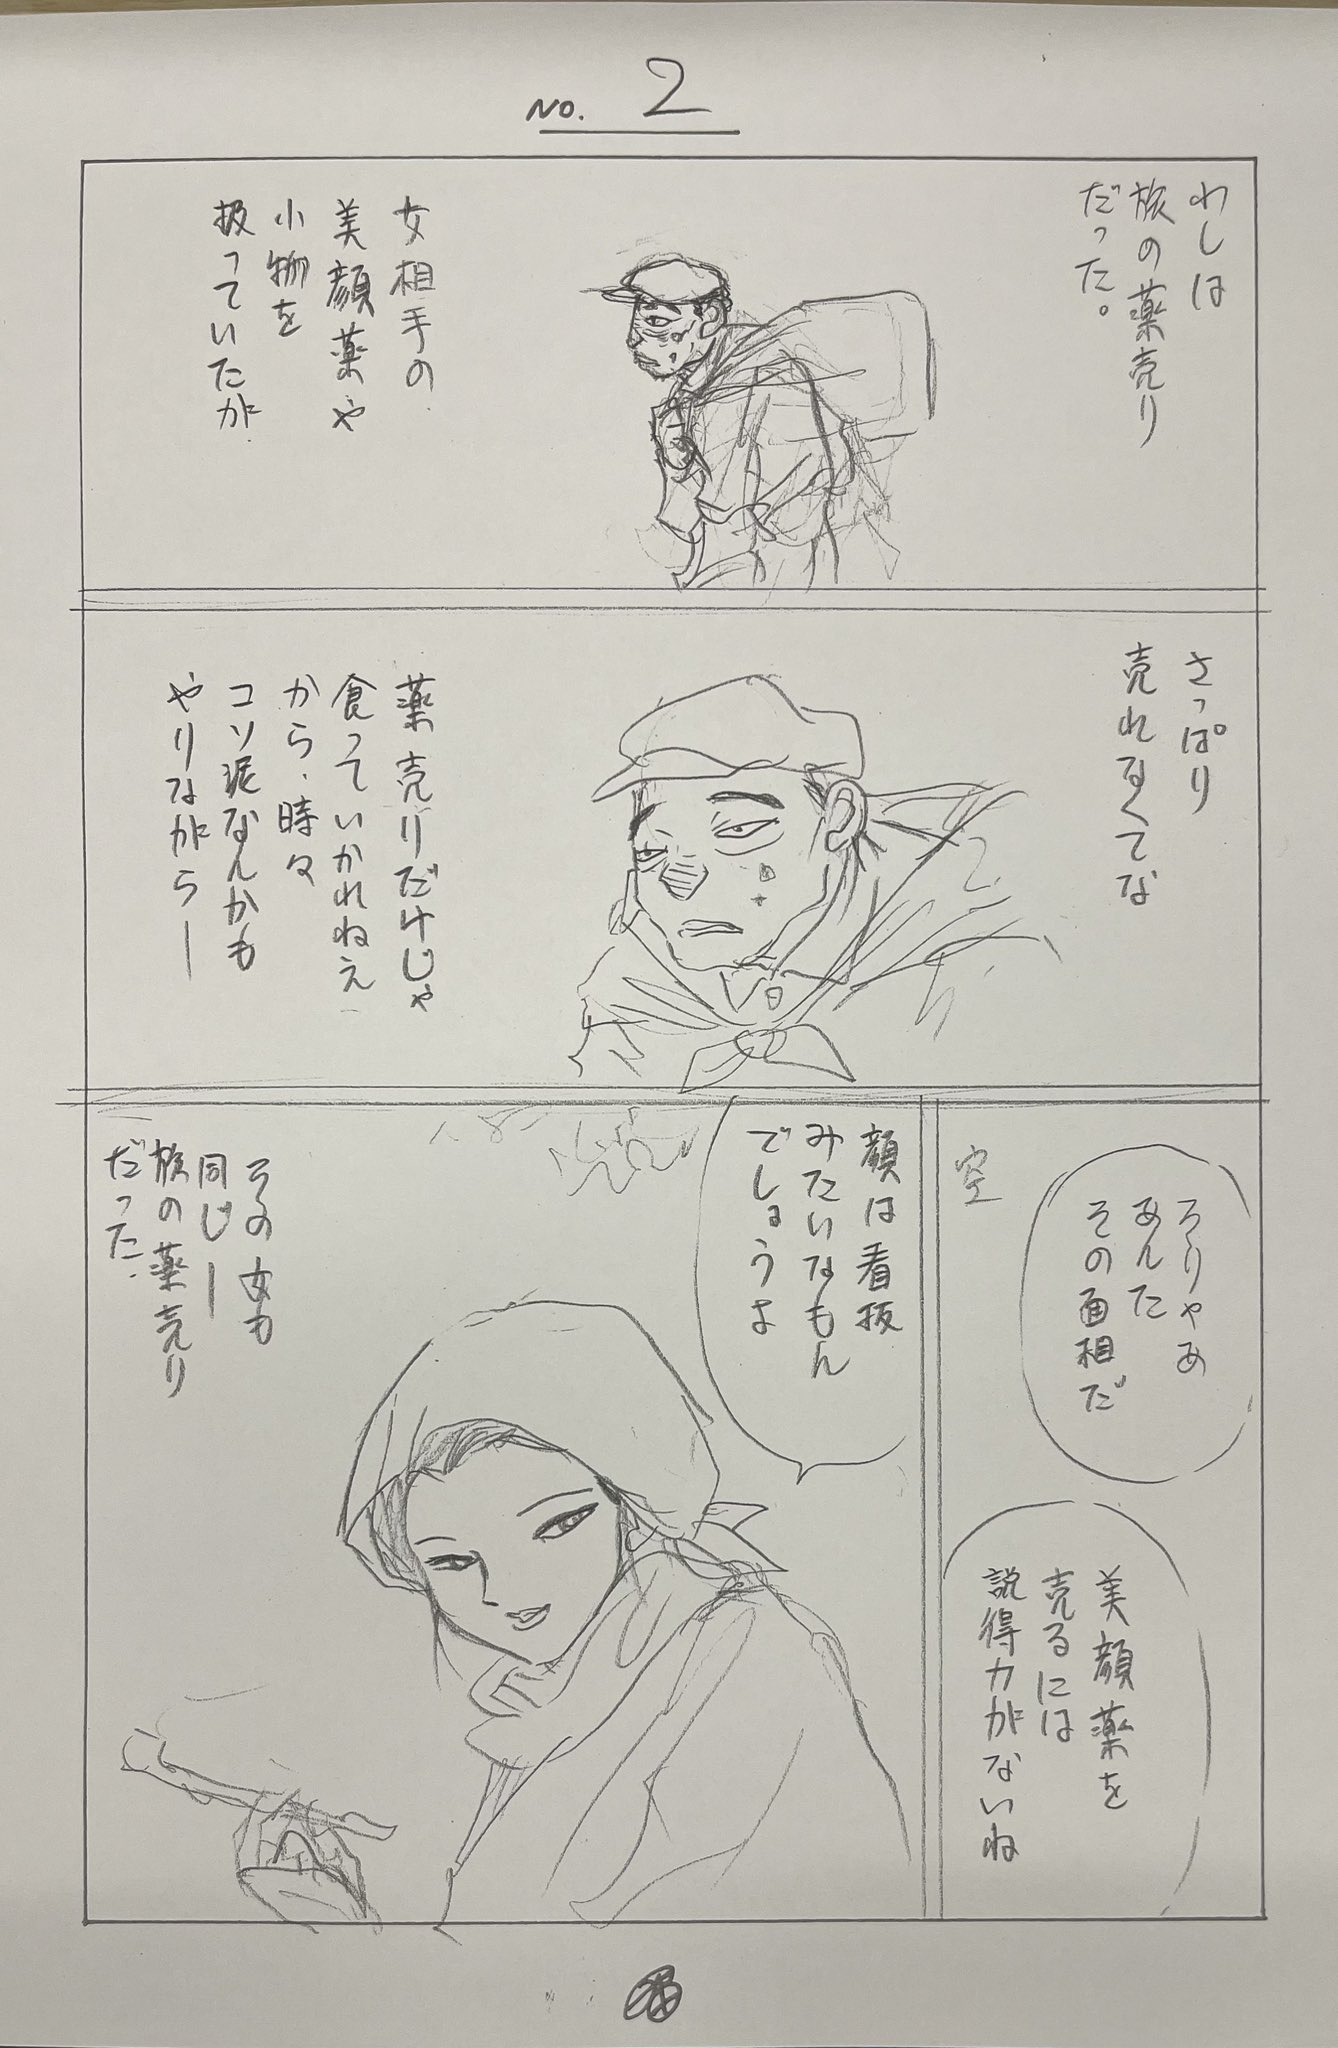 NO. 2
わしは
旅の薬売り
だった。
女相手の
美顔薬や
小物を
扱っていたが
さっぱり
売れなくてな
薬売りだけじゃ
食っていかれねえ
から、時々
コソ泥なんかも
やりながらー
そりゃあ
あんた
その面相だ
空
美顔薬を
売るには
説得力がないね
顔は看板
みたいなもん
でしょうよ
その女も
同じー
旅の薬売り
だった.